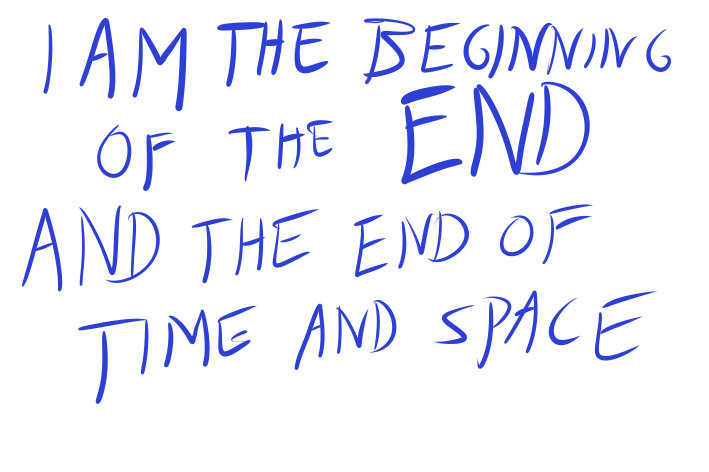 I AM THE BEGINNING
OF THE END
AND THE END OF
TIME AND SPACE